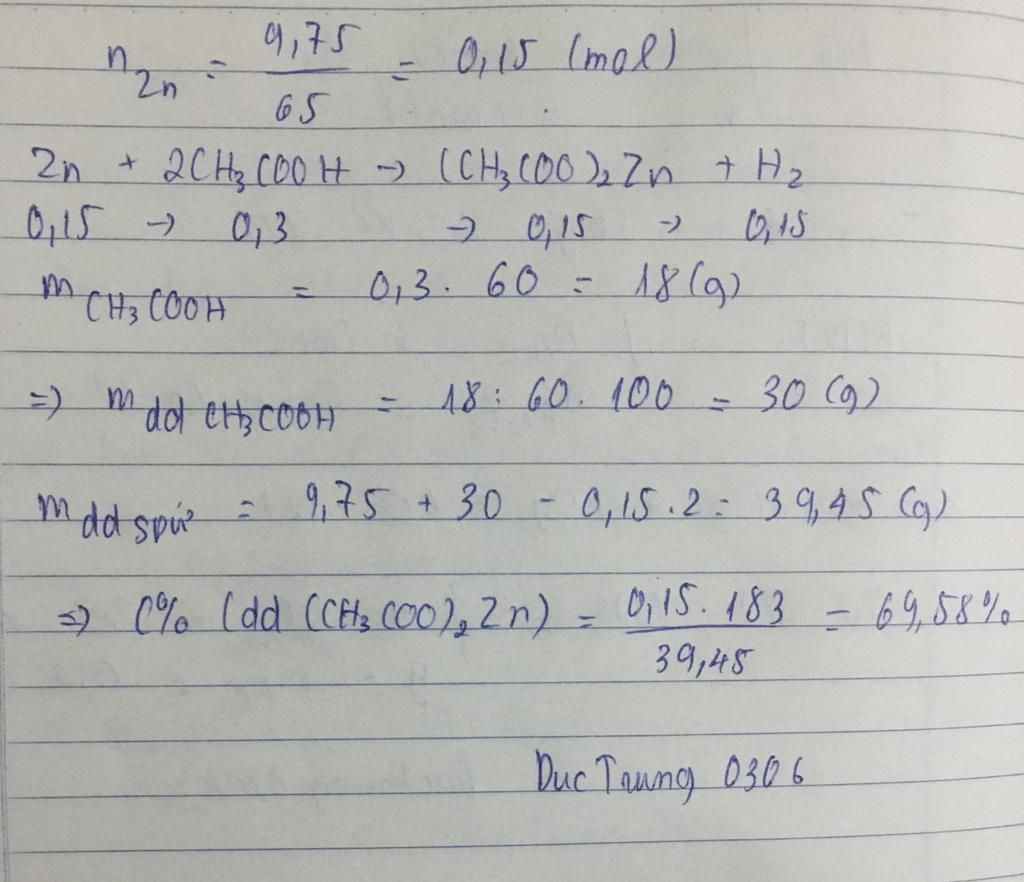 n Zn = 9,75 / 65 = 0,15 (mol)
Zn + 2CH₃COOH → (CH₃COO)₂Zn + H₂
0,15 → 0,3 → 0,15 → 0,15
m CH₃COOH = 0,3 . 60 = 18 (g)
=> m dd CH₃COOH = 18 : 60 . 100 = 30 (g)
m dd spứ = 9,75 + 30 - 0,15 . 2 = 39,45 (g)
=> C% (dd (CH₃COO)₂Zn) = 0,15 . 183 / 39,45 = 69,58%
Duc Trung 0306